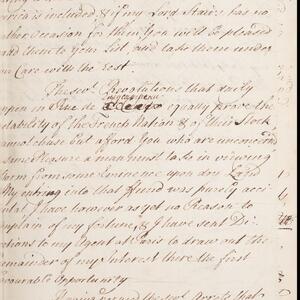 erica is included & if my Lord Stairs has no
other Occasion for them You will be pleased
add them to your List, and take them under
Care with the rest
The sev.l Revolutions that daily
happen in Rue de Quinquempoix equally prove the
tability of the French Nation & of their Stock
cannot but afford You who are unconcerned
same Pleasure a man must take in viewing
Storm from some Eminence upon dry Land
My entring into that Fund was purely acci
tal I have however as yet no Reason to
omplain of my fortune, & I have sent Di
ctions to my Agent at Paris to draw out the
remainder of my Interest there the first
vourable Opportunity
the sev.l Arrets that